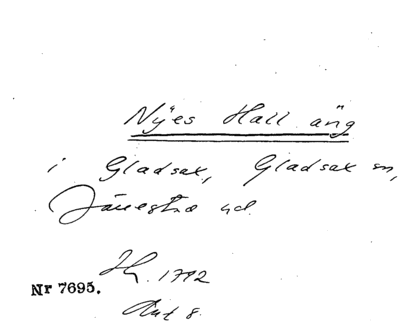 Nÿes Hall äng
i Gladsax, Gladsax sn,
Järrestad hd.
1792
Nr 7695.
Akt 8.